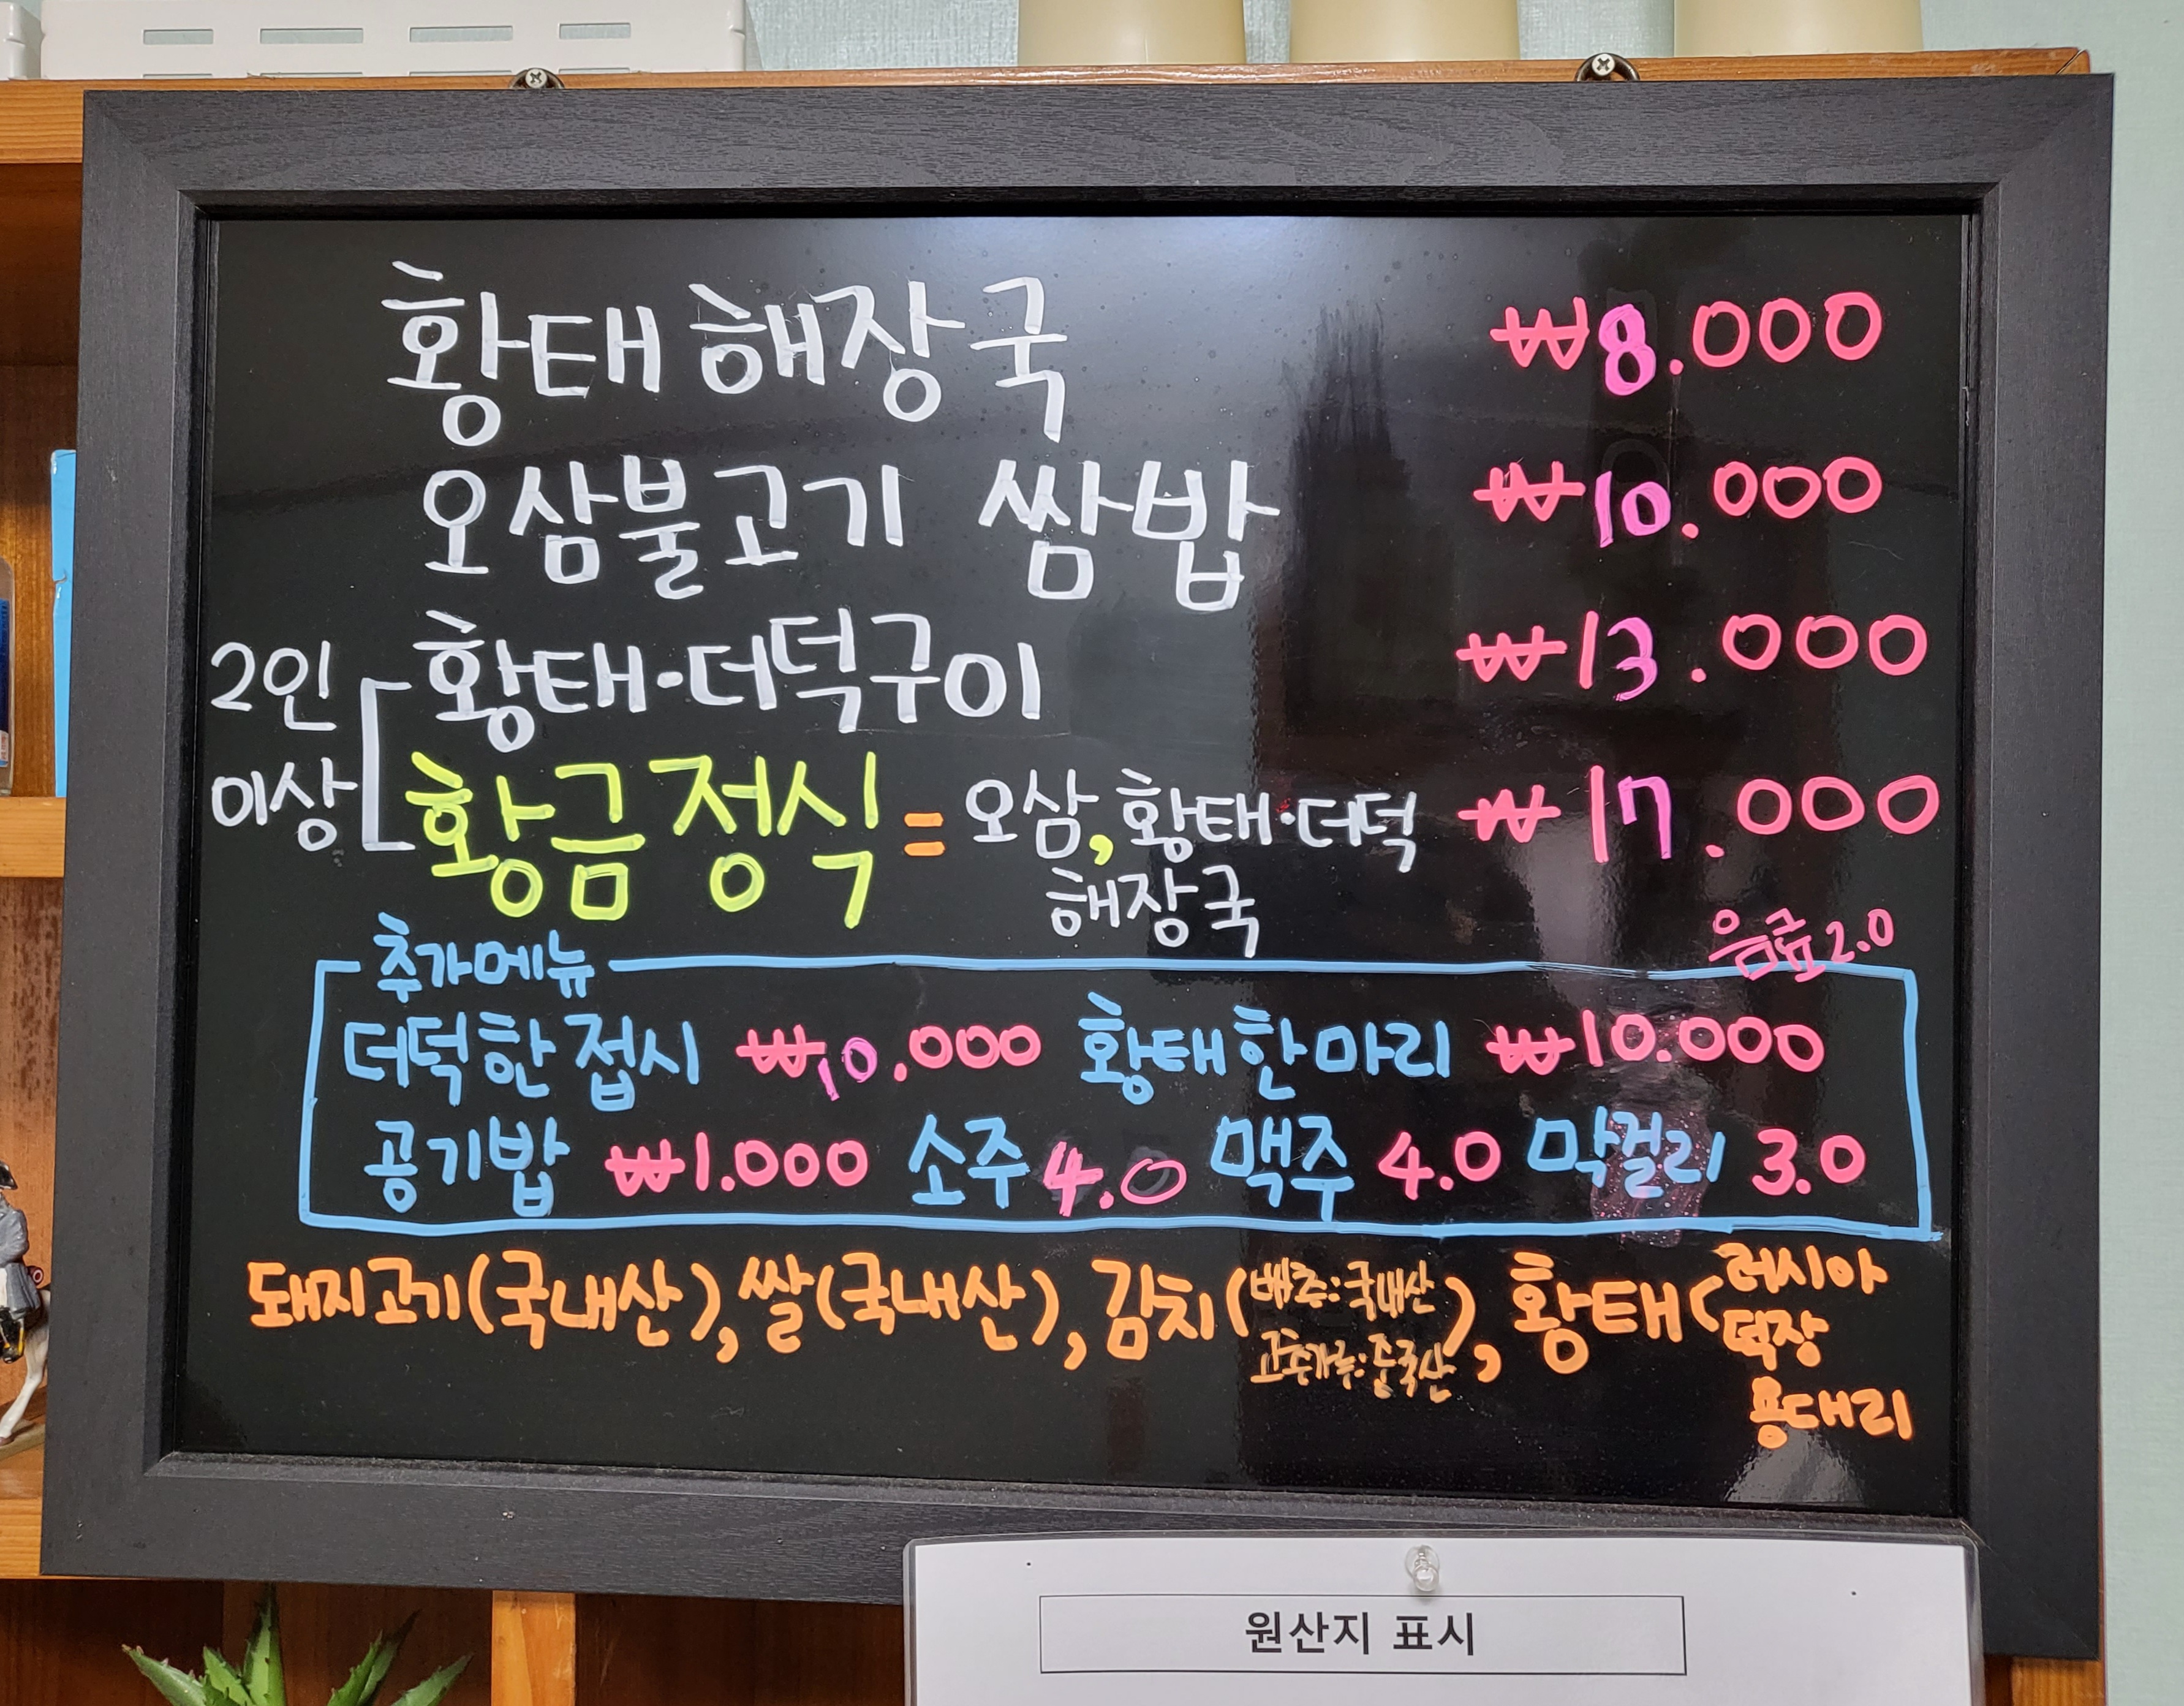 황태해장국 ₩8.000
오삼불고기 쌈밥 ₩10.000
2인 이상
황태·더덕구이 ₩13.000
황금정식 = 오삼, 황태·더덕 ₩17.000
해장국
음료 2.0
추가메뉴
더덕한접시 ₩10.000 황태한마리 ₩10.000
공기밥 ₩1.000 소주 4.0 맥주 4.0 막걸리 3.0
돼지고기(국내산), 쌀(국내산), 김치(배추:국내산
고추가루:중국산), 황태(러시아
덕장
용대리
원산지 표시